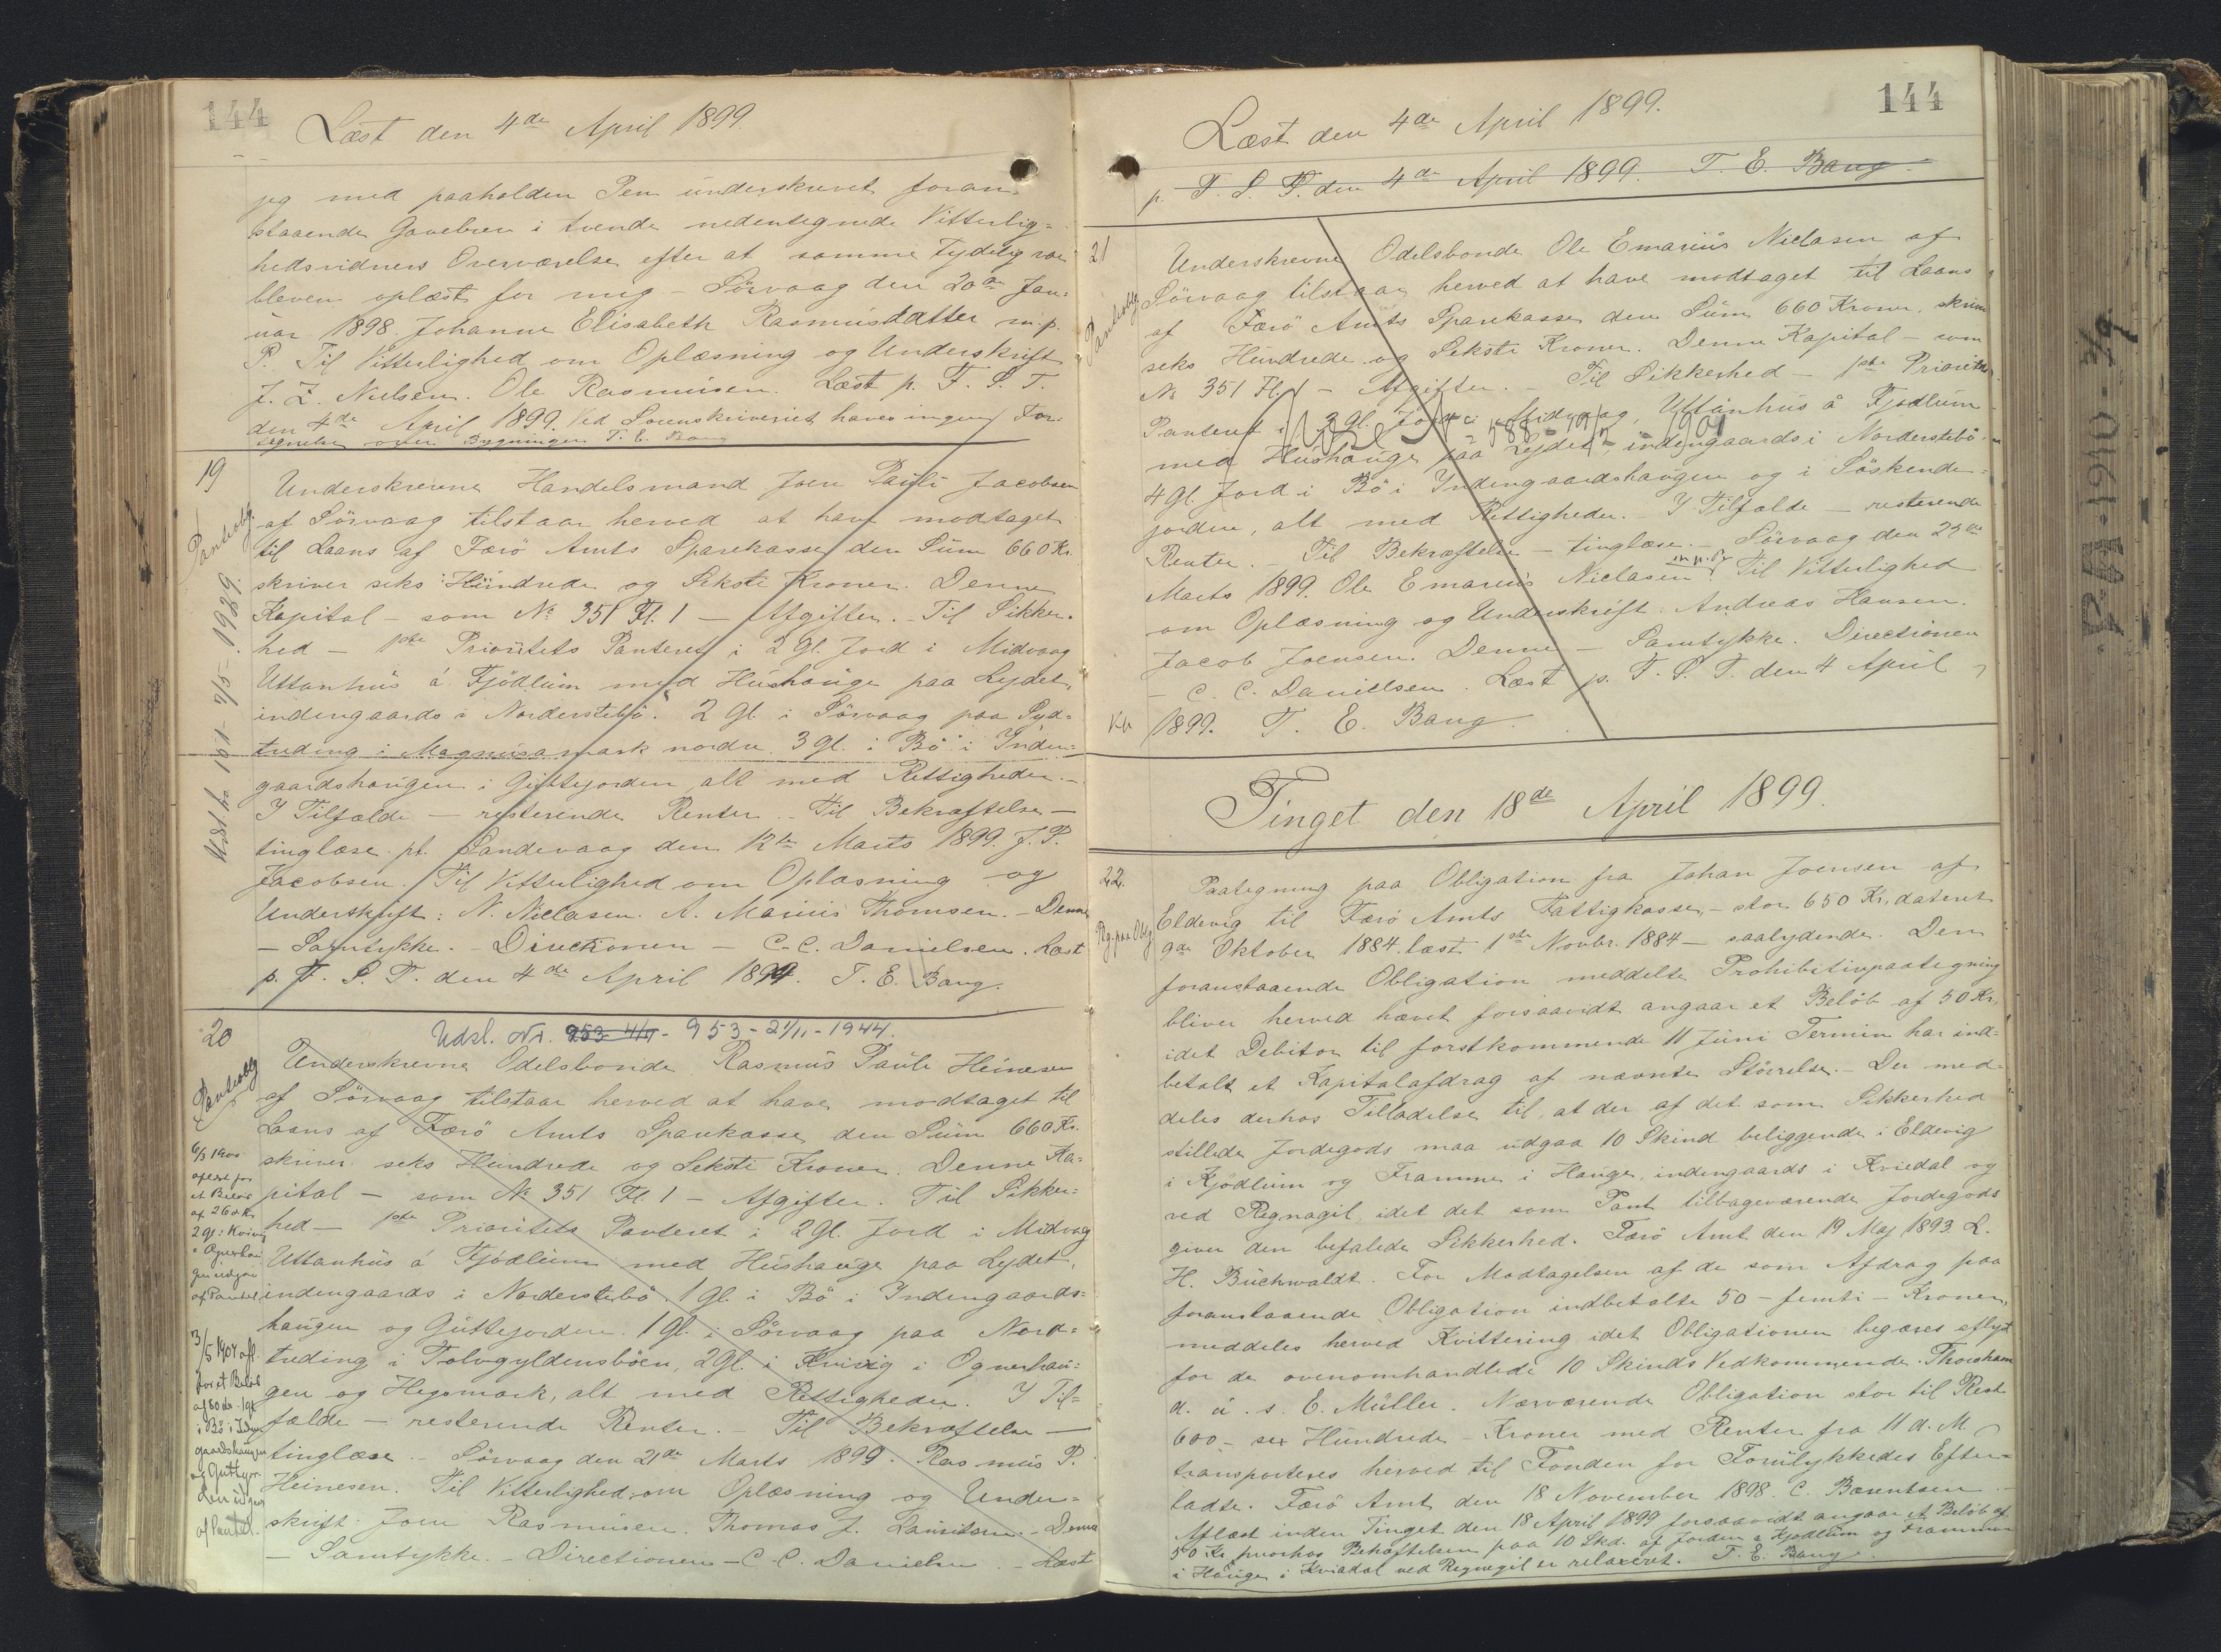 144
Læst den 4de April 1899.
jeg med paaholden Pen underskrevet foran-
staaende Gavebrev i tvende nedentegnede Vitterlig-
hedsvidners Overværelse efter at samme tydelig var
bleven oplæst for mig - Sörvaag den 20de Jan-
uar 1898. Johanne Elisabeth Rasmusdatter m. p.
P. Til Vitterlighed om Oplæsning og Underskrift
J. Z. Nielsen. Ole Rasmusen. Læst p. F. S. T.
den 4de April 1899. Ved Sorenskriveriet haves ingen For-
tegnelse over Bygningen T. E. Bang
19
Panteobg.
Udsl. No 101 - 7/5 - 1929.
Underskrevne Handelsmand Joen Pauli Jacobsen
af Sörvaag tilstaar herved at have modtaget
til Laans af Færö Amts Sparekasse den Sum 660 Kr.
skriver seks Hundrede og Seksti Kroner. Denne
Kapital - som No 351 Fl. 1 - Afgifter. - Til Sikker-
hed - 1ste Prioritets Panteret i 2 gl. Jord i Midvaag
Uttanhus á Fjödlum med Hushauge paa Lydet,
indengaards i Norderstebö. 2 gl. i Sörvaag paa Syd-
treding i Magnusamark nordre. 3 gl. i Bö i Inden-
gaardshaugen i Giptejorden alt med Rettigheder. -
I Tilfælde - resterende Renter. - Til Bekræftelse -
tinglæse. pt. Sandevaag den 12te Marts 1899. J. P.
Jacobsen. Til Vitterlighed om Oplæsning og
Underskrift: N. Niclasen. A. Marius Thomsen. - Denne
- Samtykke. - Directionen - C. C. Danielsen. Læst
p. F. S. T. den 4de April 1899. T. E. Bang.
20
Udsl. Nr. 953 - 4/11 - 953 - 21/11 - 1944.
Panteobg
Underskrevne Odelsbonde Rasmus Paule Heinesen
af Sörvaag tilstaar herved at have modtaget til
Laans af Færö Amts Sparekasse den Sum 660 Kr.
skriver seks Hundrede og Seksti Kroner. Denne Ka-
pital - som No 351 Fl. 1 - Afgifter. Til Sikker-
hed - 1ste Prioritets Panteret i 2 gl. Jord i Midvaag
Uttanhus á Fjödlum med Hushauge paa Lydet,
indengaards i Norderstebö. 1 gl. i Bö i Indengaards-
haugen og Guttejorden. 1 gl. i Sörvaag paa Nord-
treding i Tolvgyldensböen, 2 gl. i Kvivig i Ognerhau-
gen og Hegomark, alt med Rettigheder. I Til-
fælde - resterende Renter. - Til Bekræftelse -
tinglæse. - Sörvaag den 21de Marts 1899. Rasmus P.
Heinesen. Til Vitterlighed om Oplæsning og Under-
skrift: Joen Rasmusen. Thomas J. Lauritsen. - Denne
- Samtykke. - Directionen - C. C. Danielsen. - Læst
6/3 1900
aflæst for
et Beløb
af 260 Kr
2 gl. i Kvivig
i Ognerhau
gen udgaa
af Pantet
3/5 1904 afl.
for et Beløb
af 80 Kr. 1 gl.
i Bö i Inden
gaardshaugen
og Guttejor
den udgaa
af Pantet.
144
Læst den 4de April 1899.
p. F. S. T. den 4de April 1899. T. E. Bang
21
Panteobg.
Underskrevne Odelsbonde Ole Emarius Niclasen af
Sörvaag tilstaar herved at have modtaget til Laans
af Færö Amts Sparekasse den Sum 660 Kroner, skriver
seks Hundrede og Seksti Kroner. Denne Kapital - som
No 351 Fl. 1 - Afgifter. - Til Sikkerhed - 1ste Prioritets
Panteret i 2 gl. Jord i Midvaag, Uttanhus á Fjødlum
med Hushauge paa Lydet, indengaards i Norderstebö.
4 gl. Jord i Bö i Indengaardshaugen og i Söskende-
jorden, alt med Rettigheder. - I Tilfælde - resterende
Renter. - Til Bekræftelse - tinglæse. - Sörvaag den 23de
Marts 1899. Ole Emarius Niclasen m. p. P. Til Vitterlighed
om Oplæsning og Underskrift: Andreas Hansen.
Jacob Joensen. Denne - Samtykke. Directionen
- C. C. Danielsen. Læst p. F. S. T. den 4 April
1899. T. E. Bang.
Tinget den 18de April 1899.
22.
Pg. paa Obg.
Paategning paa Obligation fra Johan Joensen af
Eldevig til Færö Amts Fattigkasse, - stor 650 Kr, dateret
9de Oktober 1884. læst 1ste Novbr. 1884 - saalydende. Den
foranstaaende Obligation meddelte Prohibitivpaategning
bliver herved hævet forsaavidt angaar et Beløb af 50 Kr.
idet Debitor til førstkommende 11 Juni Termin har ind-
betalt et Kapitalafdrag af nævnte Størrelse. - Der med-
deles derhos Tilladelse til, at der af det som Sikkerhed
stillede Jordegods maa udgaa 10 Skind beliggende i Eldevig
i Kjödlum og Framme i Hauge, indengaards i Kviedal og
ved Regnagil, idet det som Pant tilbageværende Jordegods
giver den befalede Sikkerhed. Færö Amt den 19 Maj 1893. L.
H. Buchwaldt. For Modtagelsen af de som Afdrag paa
foranstaaende Obligation indbetalte 50 - femti - Kroner,
meddeles herved Kvittering idet Obligationen begæres aflyst
for de ovenomhandlede 10 Skinds Vedkommende. Thorshavn
d. u. s. E. Müller. Nærværende Obligation stor til Rest
600 - sex Hundrede - Kroner med Renter fra 11 d. M.
transporteres herved til Fonden for Forulykkedes Efter-
ladte. Færö Amt den 18 November 1898. C. Bærentsen.
Aflæst inden Tinget den 18 April 1899 forsaavidt angaar et Beløb af
50 Kr hvorhos Behæftelsen paa 10 Skd. af Jorden i Kjödlum og Frammen
i Hauge i Kviadal ved Regnegil er relaxeret. T. E. Bang